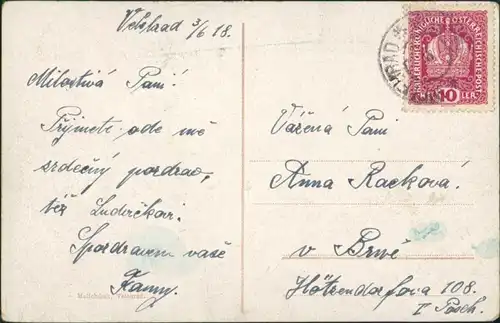 Velehrad 3/6 18.
Milostivá Paní!
Přijměte ode mě
srdečný pozdrav,
též Ludvíčkovi.
S pozdravem vaše
Fanny.
Vážená Paní
Anna Racková.
v Brně
Hötzendorfova 108.
I Posch.
KAISERLICHE KÖNIGLICHE ÖSTERREICHISCHE POST
HELLER 10 HELLER
Velehrad.